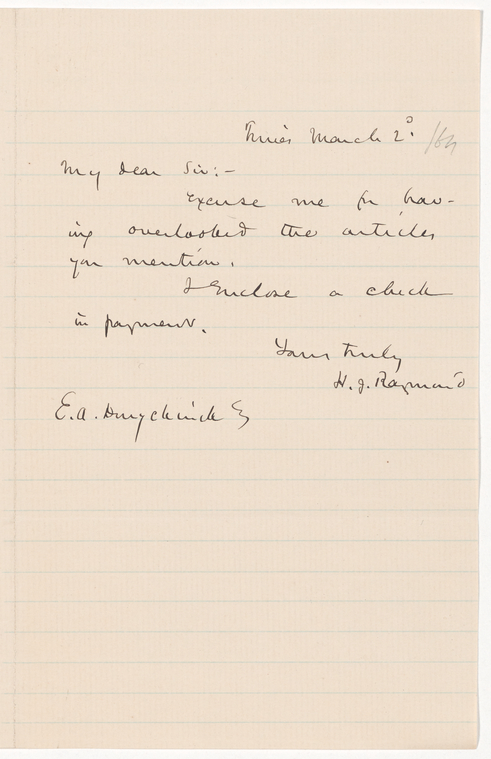 Times March 2d. /64
My dear Sir:-
Excuse me for hav-
ing overlooked the articles
you mention.
I Enclose a check
in payment.
Yours truly
H. J. Raymond
E. A. Duyckinck Esq